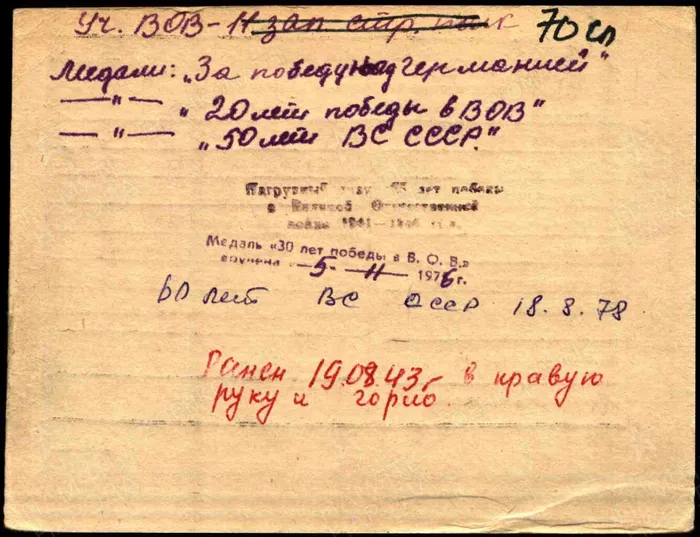 Уч. ВОВ - 11 зап стр. полк 70 сл
Медали: „За победу над Германией"
—"— „20 лет победы в ВОВ"
—"— „50 лет ВС СССР."
Нагрудный знак 25 лет победы
в Великой Отечественной
войне 1941—1945 г.г.
Медаль «30 лет победы в В. О. В.»
вручена «5-11-1976 г.
60 лет ВС СССР 18.8.78
Ранен 19.08.43г в правую
руку и горло.